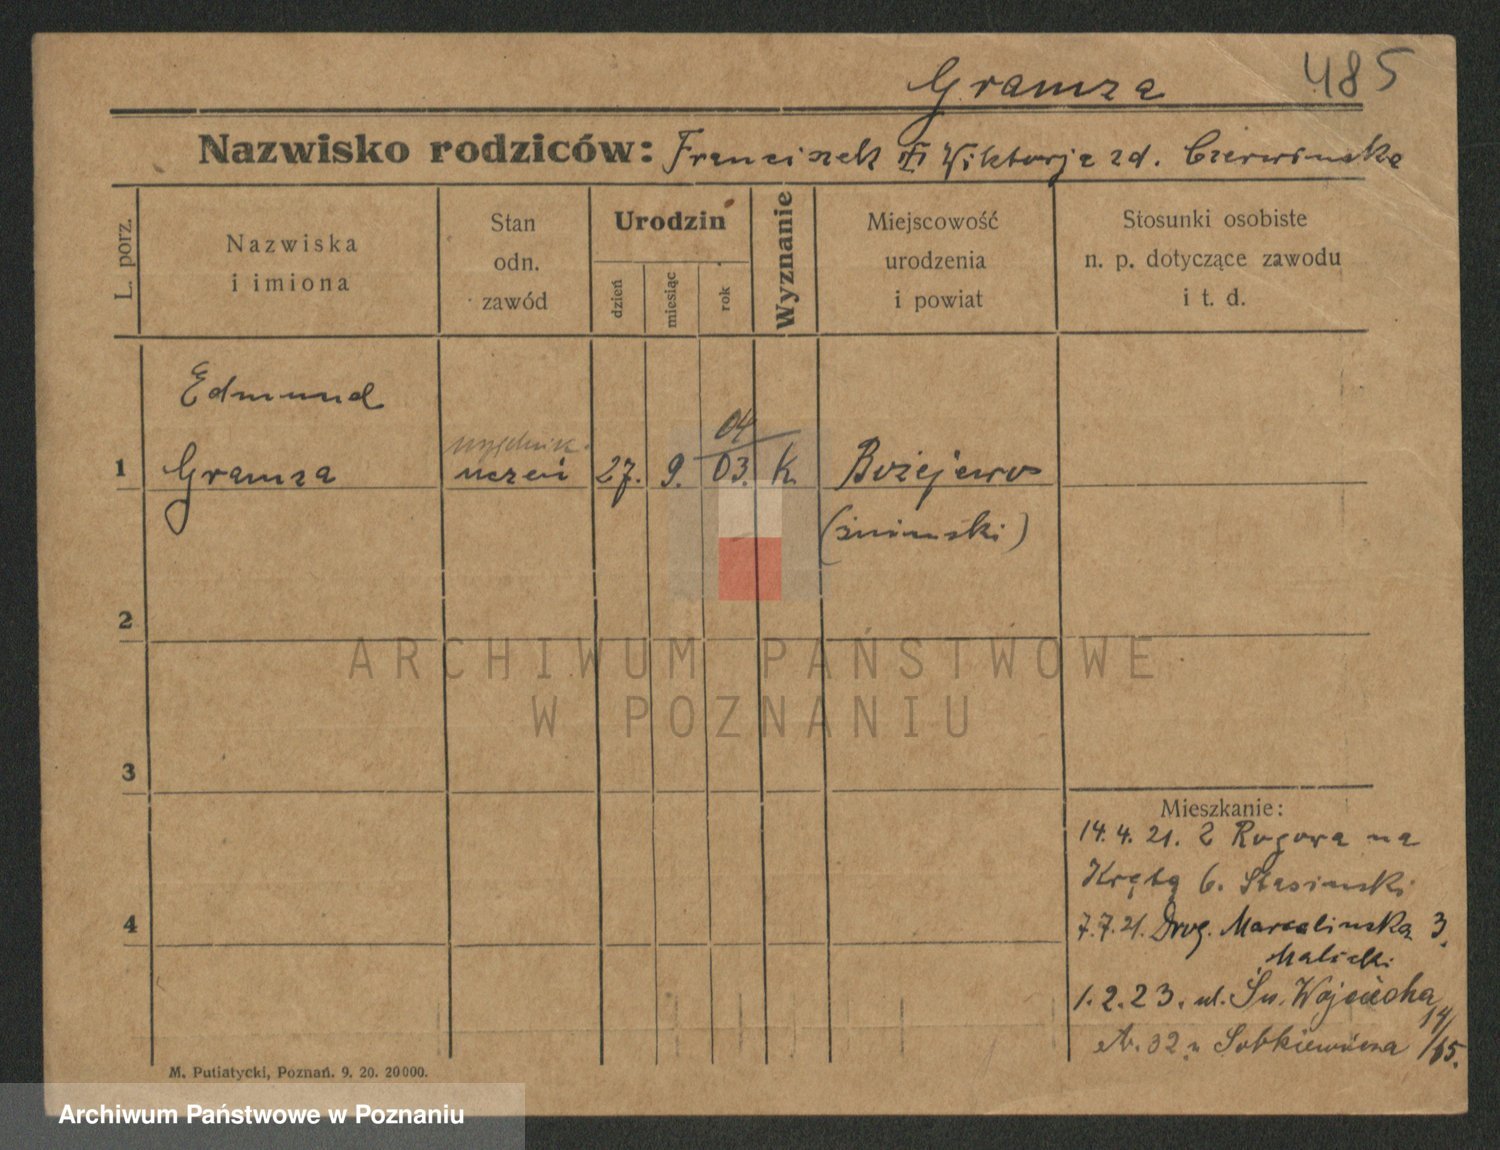 Gramza 485
Nazwisko rodziców: Franciszek i Wiktorja zd. Czerwinska
L. porz.
Nazwiska
i imiona
Stan
odn.
zawód
Urodzin
dzień
miesiąc
rok
Wyznanie
Miejscowość
urodzenia
i powiat
Stosunki osobiste
n. p. dotyczące zawodu
i t. d.
Edmund
urzędnik 04
1 Gramza uczeń 27. 9. 03. k. Bożejewo
(żniński)
2
3
4
Mieszkanie:
14.4.21. z Rogowa na
Krętą 6. Stasinski
7.7.21. Drog. Marcelinska 3.
Malicki
1.2.23. ul. Św. Wojciecha
14/15.
32 u Sobkiewicza
M. Putiatycki, Poznań. 9. 20. 20000.
ARCHIWUM PAŃSTWOWE
W POZNANIU
Archiwum Państwowe w Poznaniu